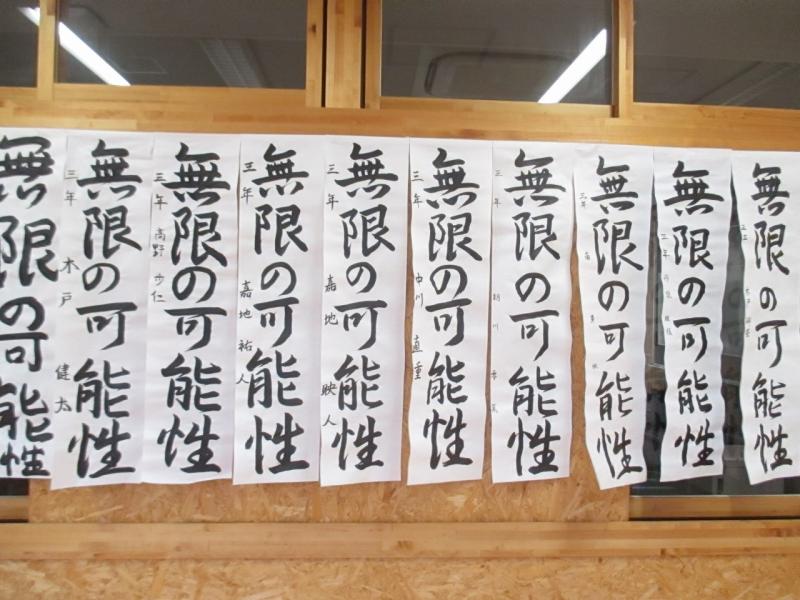 無限の可能性
無限の可能性
三年
無限の可能性
三年
無限の可能性
三年
無限の可能性
三年 中川 直重
無限の可能性
三年 嘉地 映人
無限の可能性
三年 嘉地 祐人
無限の可能性
三年 高野 歩仁
無限の可能性
三年 木戸 健太
無限の可能性